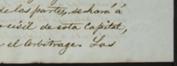 de las partes, se hará á
civil de esta Capital,
el arbitrage. Las